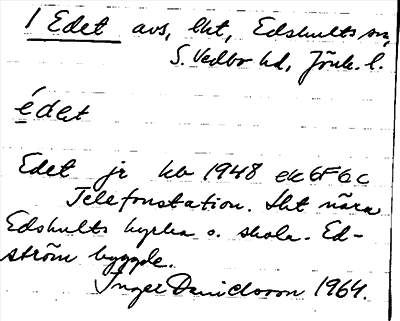 1 Edet avs, lht, Edshults sn,
S. Vedbo hd, Jönk. l.
édet
Edet jr kb 1948 ek 6F6c
Telefonstation. Lht nära
Edshults kyrka o. skola. Ed-
ström byggde.
Inger Danielsson 1964.